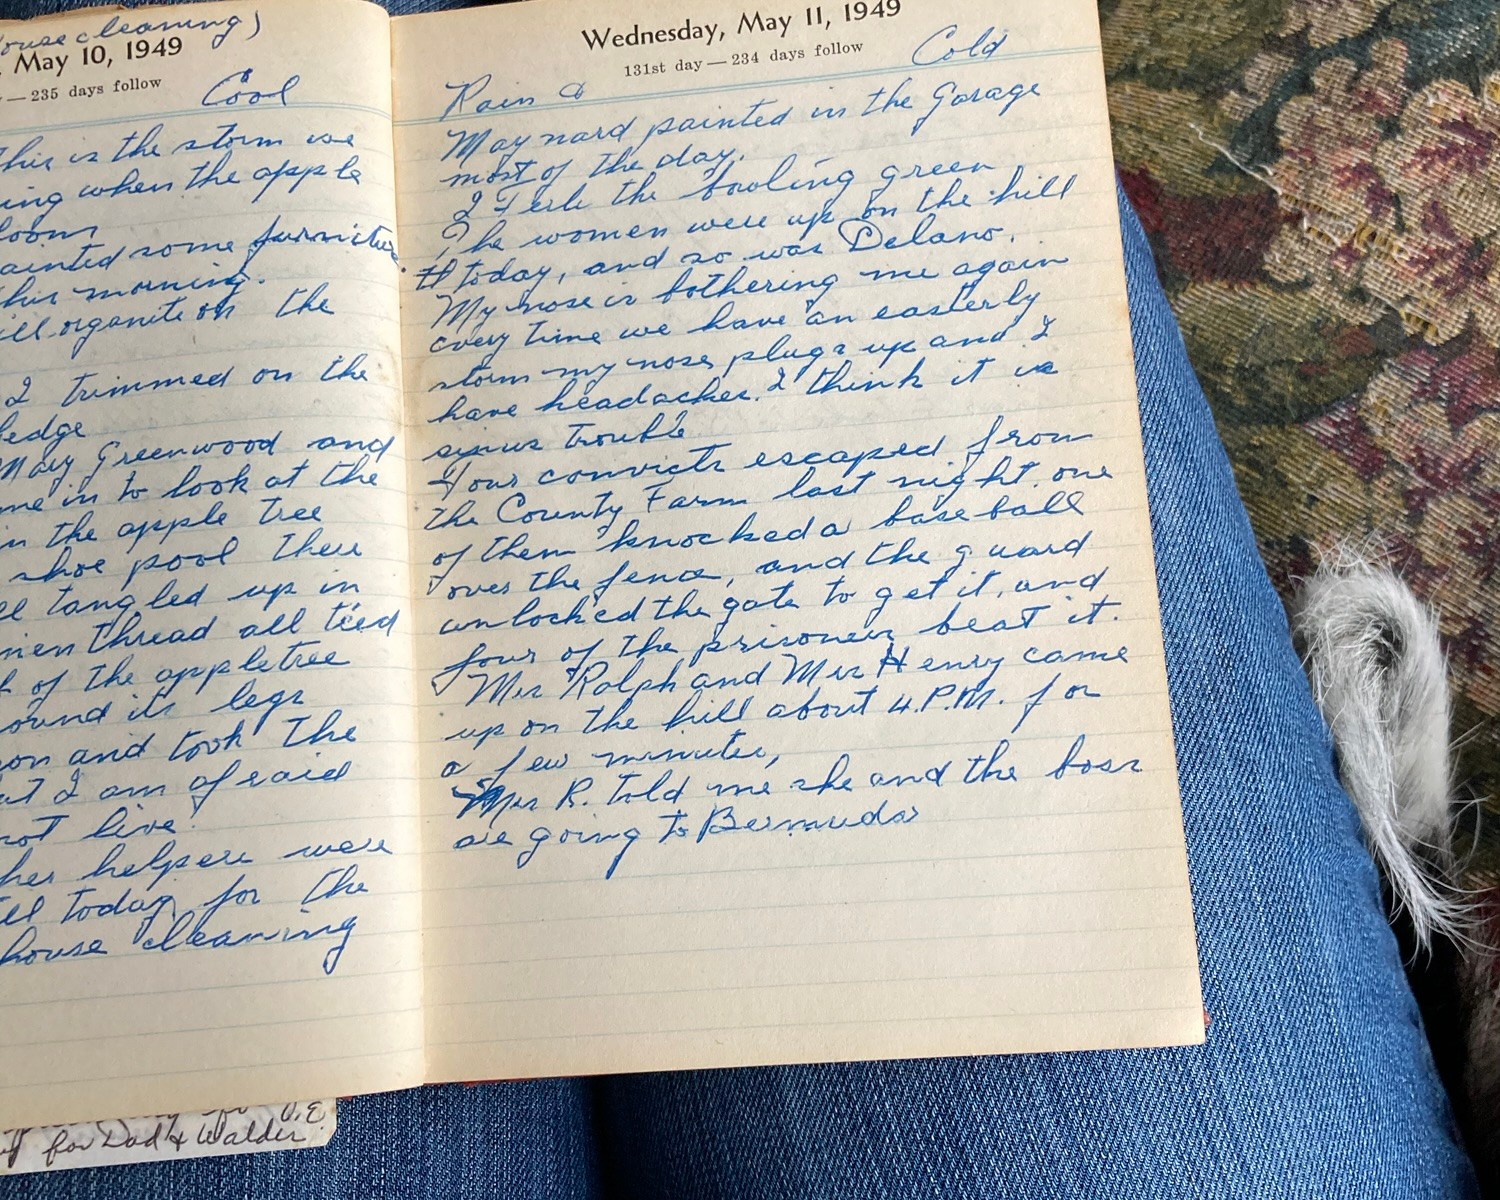 ouse cleaning)
, May 10, 1949
— 235 days follow
Cool
This is the storm we
ing when the apple
loom
ainted some furniture.
this morning.
ill organite on the
I trimmed on the
hedge
Mary Greenwood and
me in to look at the
in the apple tree
shoe pool there
ll tangled up in
nen thread all tied
of the appletree
ound its legs
on and took the
ut I am afraid
not live.
her helpers were
ill today for the
house cleaning
for Dad & Walder
Wednesday, May 11, 1949
131st day — 234 days follow
Rain & Cold
Maynard painted in the Garage
most of the day.
I Ferte the bowling green
The women were up on the hill
today, and so was Delano.
My nose is bothering me again
every time we have an easterly
storm my nose plugs up and I
have headaches. I think it is
sinus trouble
Four convicts escaped from
the County Farm last night. one
of them knocked a baseball
over the fence, and the guard
unlocked the gate to get it, and
four of the prisoners beat it.
Mrs Ralph and Mrs Henry came
up on the hill about 4.P.M. for
a few minutes,
Mrs R. told me she and the boss
are going to Bermuda